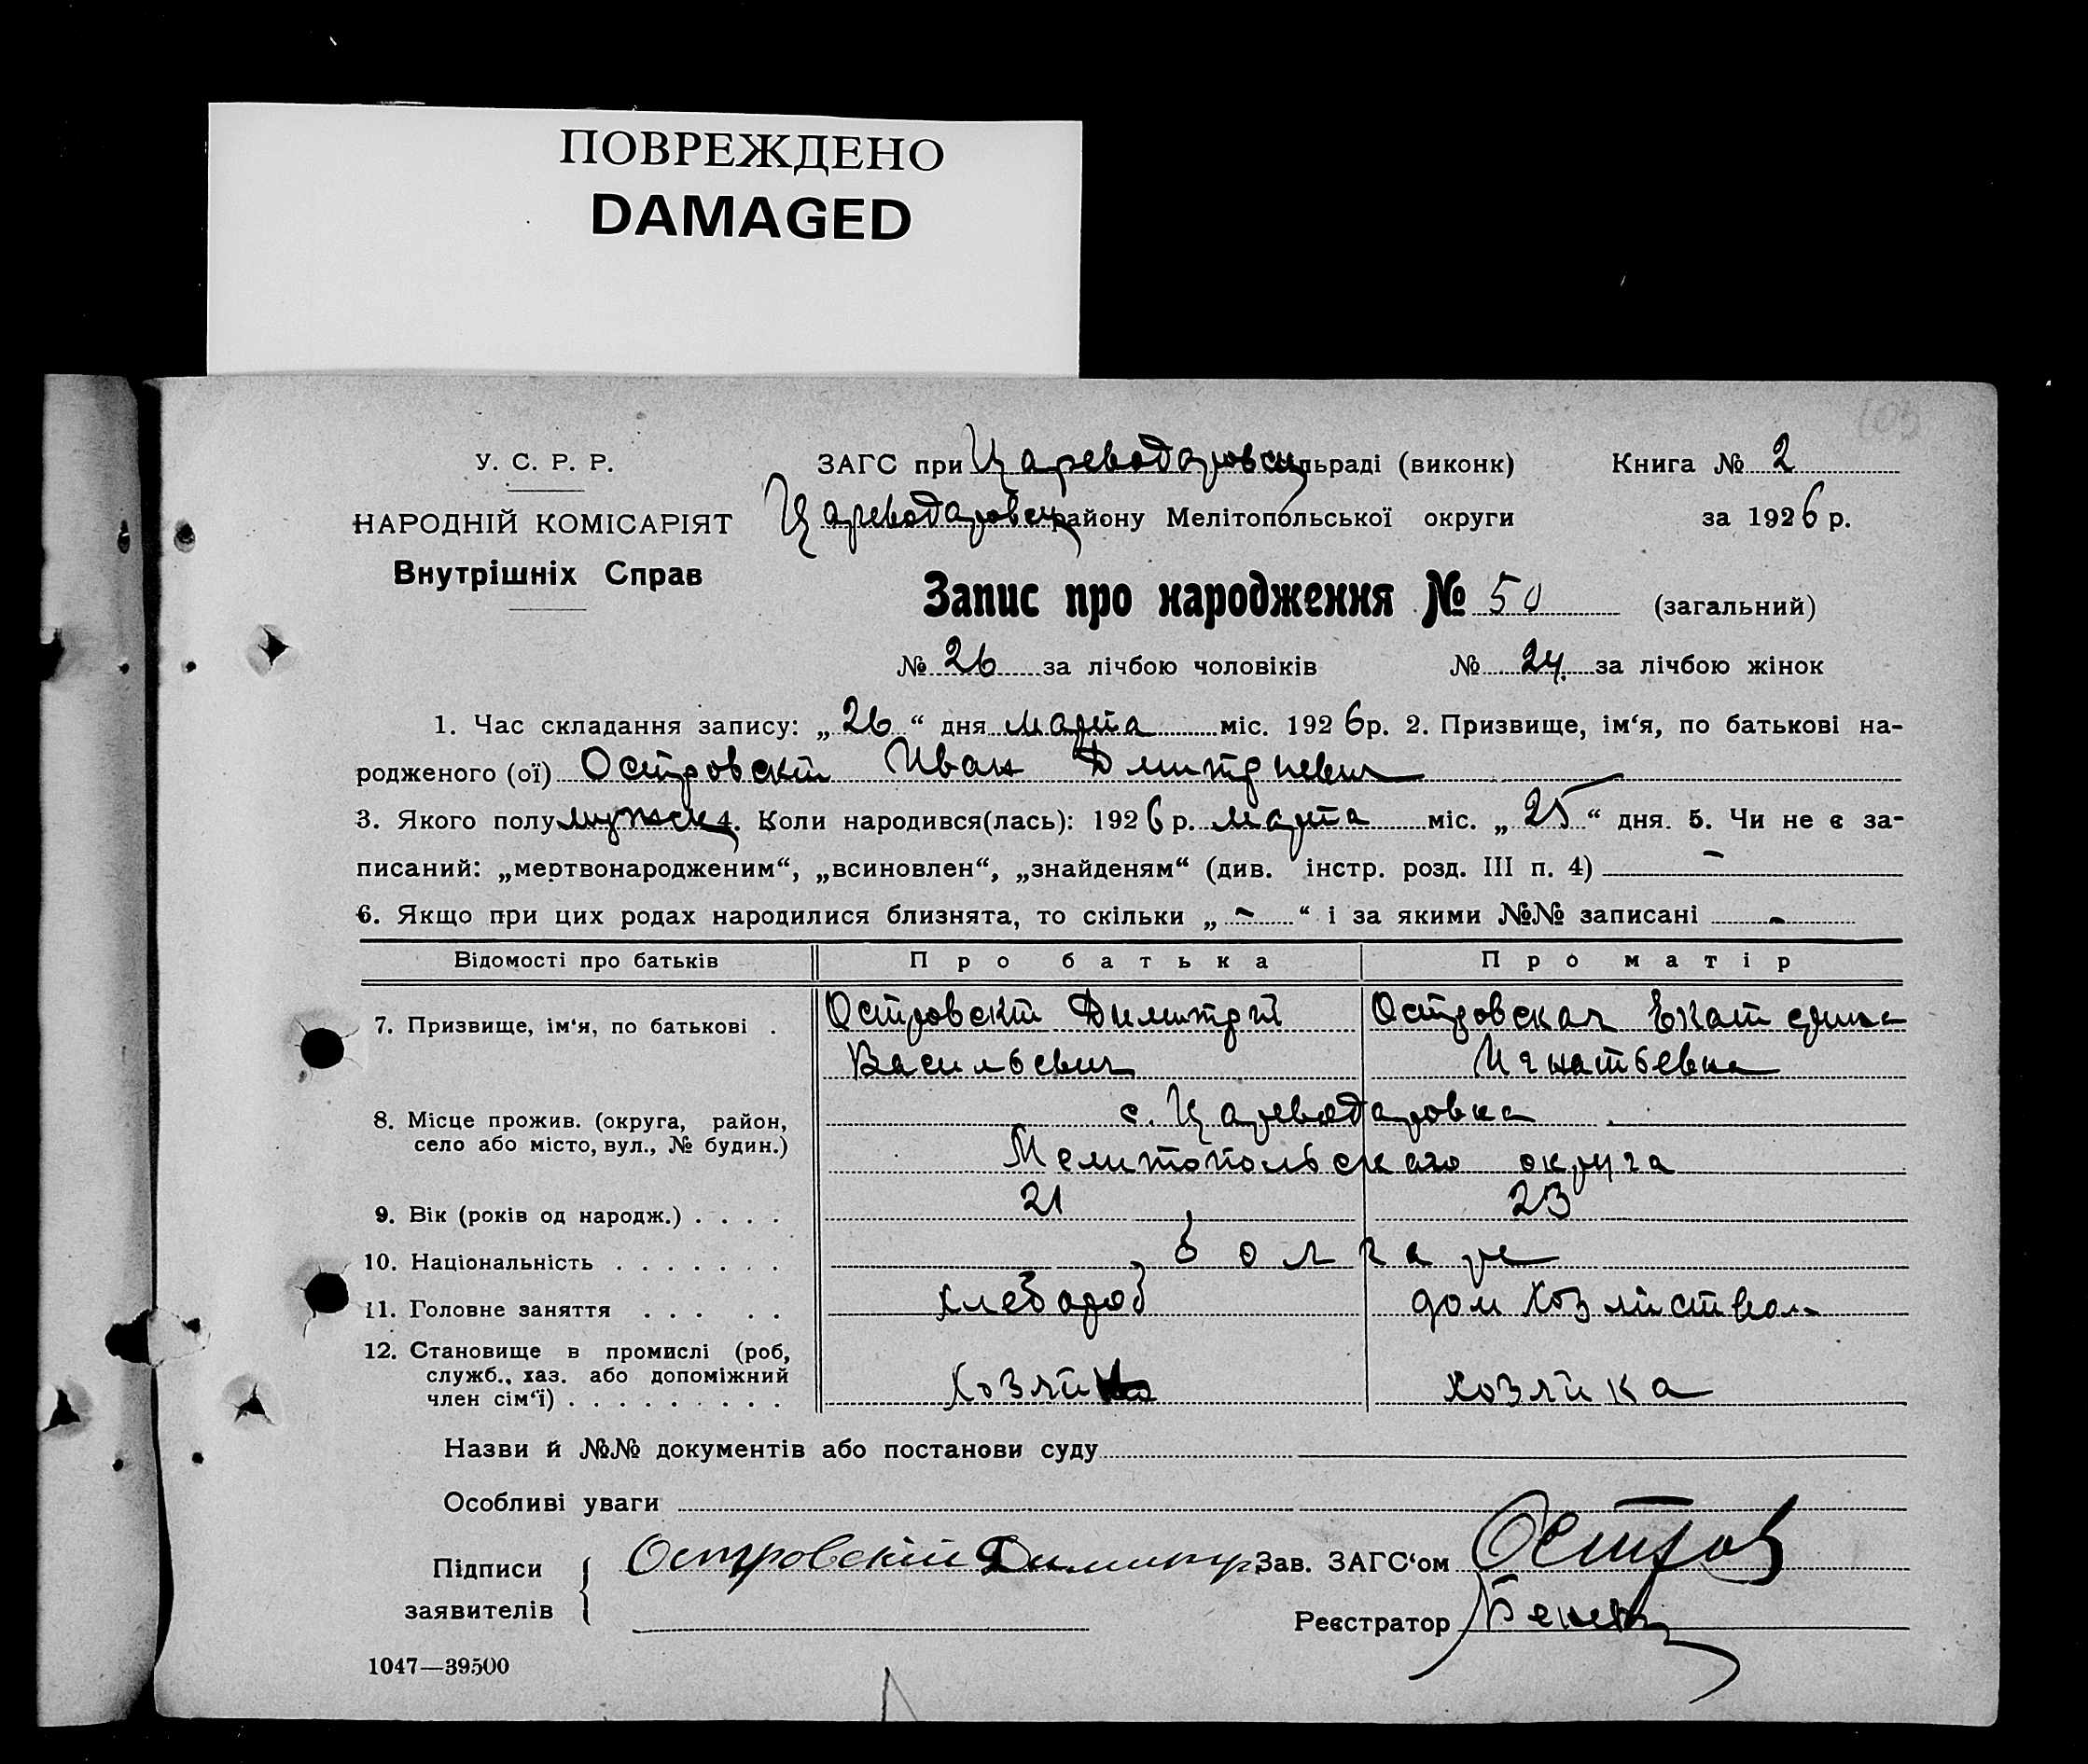 ПОВРЕЖДЕНО
DAMAGED
У. С. Р. Р.
НАРОДНІЙ КОМІСАРІЯТ
Внутрішніх Справ
ЗАГС при Цареводаровск льраді (виконк)
Цареводаровск району Мелітопольської округи
Книга № 2
за 1926 р.
Запис про народження № 50 (загальний)
№ 26 за лічбою чоловіків № 24 за лічбою жінок
1. Час складання запису: „26“ дня марта міс. 1926 р. 2. Призвище, ім‘я, по батькові на-
родженого (ої) Островскій Иван Дмитриевич
3. Якого полу мужск 4. Коли народився(лась): 1926 р. марта міс. „25“ дня. 5. Чи не є за-
писаний: „мертвонародженим“, „всиновлен“, „знайденям“ (див. інстр. розд. III п. 4) –
6. Якщо при цих родах народилися близнята, то скільки „ – “ і за якими №№ записані -
Відомості про батьків Про батька Про матір
7. Призвище, ім‘я, по батькові . Островскій Димитрій Островская Екатерина
Васильевич Игнатьевна
8. Місце прожив. (округа, район, с. Цареводаровка
село або місто, вул., № будин.) Мелитопольского округа
9. Вік (років од народж.) . . . . 21 23
10. Національність . . . . . . . болгаре
11. Головне заняття . . . . . хлебороб дом хозяйством
12. Становище в промислі (роб,
служб., хаз. або допоміжний
член сім‘ї) . . . . . . . . . хозяин хозяйка
Назви й №№ документів або постанови суду
Особливі уваги
Підписи
заявителів
Островскій Димитр
Зав. ЗАГС‘ом Остров
Реєстратор
1047—39500